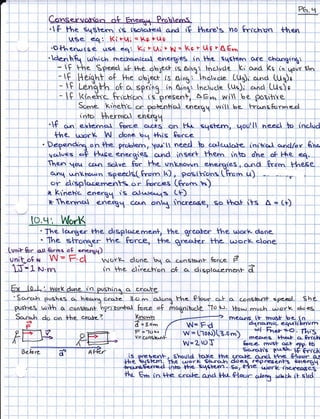 PG. 4
Conservation of Energy Problems
·If the system is isolated and if there's no friction then
use eq: Ki+Ui=Kf+Uf
·Otherwise use eq: Ki+Ui+W=Kf+Uf+ΔEth
·Identify which mechanical energies in the system are changing:
-If the speed of the object is Δing: include Ki and Kf in your Eqn
-If Height of the object is Δing: Include (Ug)i and (Ug)f
-If Length of a spring is Δing: Include (Us)i and (Us)f
-If Kinetic friction is present, ΔEth will be positive.
Some kinetic or potential energy will be transformed
into thermal energy
·If an external force acts on the system, you'll need to includ
the work W done by this force
·Depending on the problem, you'll need to calculate initial and/or fina
values of these energies and insert them into one of the eq.
Then you can solve for the unknown energies, and from these
any unknown speeds (from K), positions (from U)
or displacements or forces (from W)
* Kinetic energy is always (+)
* Thermal energy can only increase, so that its Δ=(+)
10.4: Work
·The larger the displacement, the greater the work done
·The stronger the force, the greater the work done
(unit for all forms of energy)
unit of W W=Fd work done by a constant force F
1J=1N·m in the direction of a displacement d
Ex 10.1: Work done in pushing a crate
·Sarah pushes a heavy crate 3.0m along the floor at a constant speed. She
pushes with a constant horizontal force of magnitude 70N. How much work does
Sarah do on the crate?
Known
d=3.0m
F=70N
v=constant
W=Fd
W=(70N)(3.0m)
W=210J
means it must be in
dynamic equilibrium
w/ Fnet=0. This
means that a frich
force must act opp to
Sarah's push. If frich
Before d After
is present, should take the crate and the floor as
the system. The work Sarah does represents energy
transferred into the system. So, the work increases
the Eth in the crate and the floor along which it slid